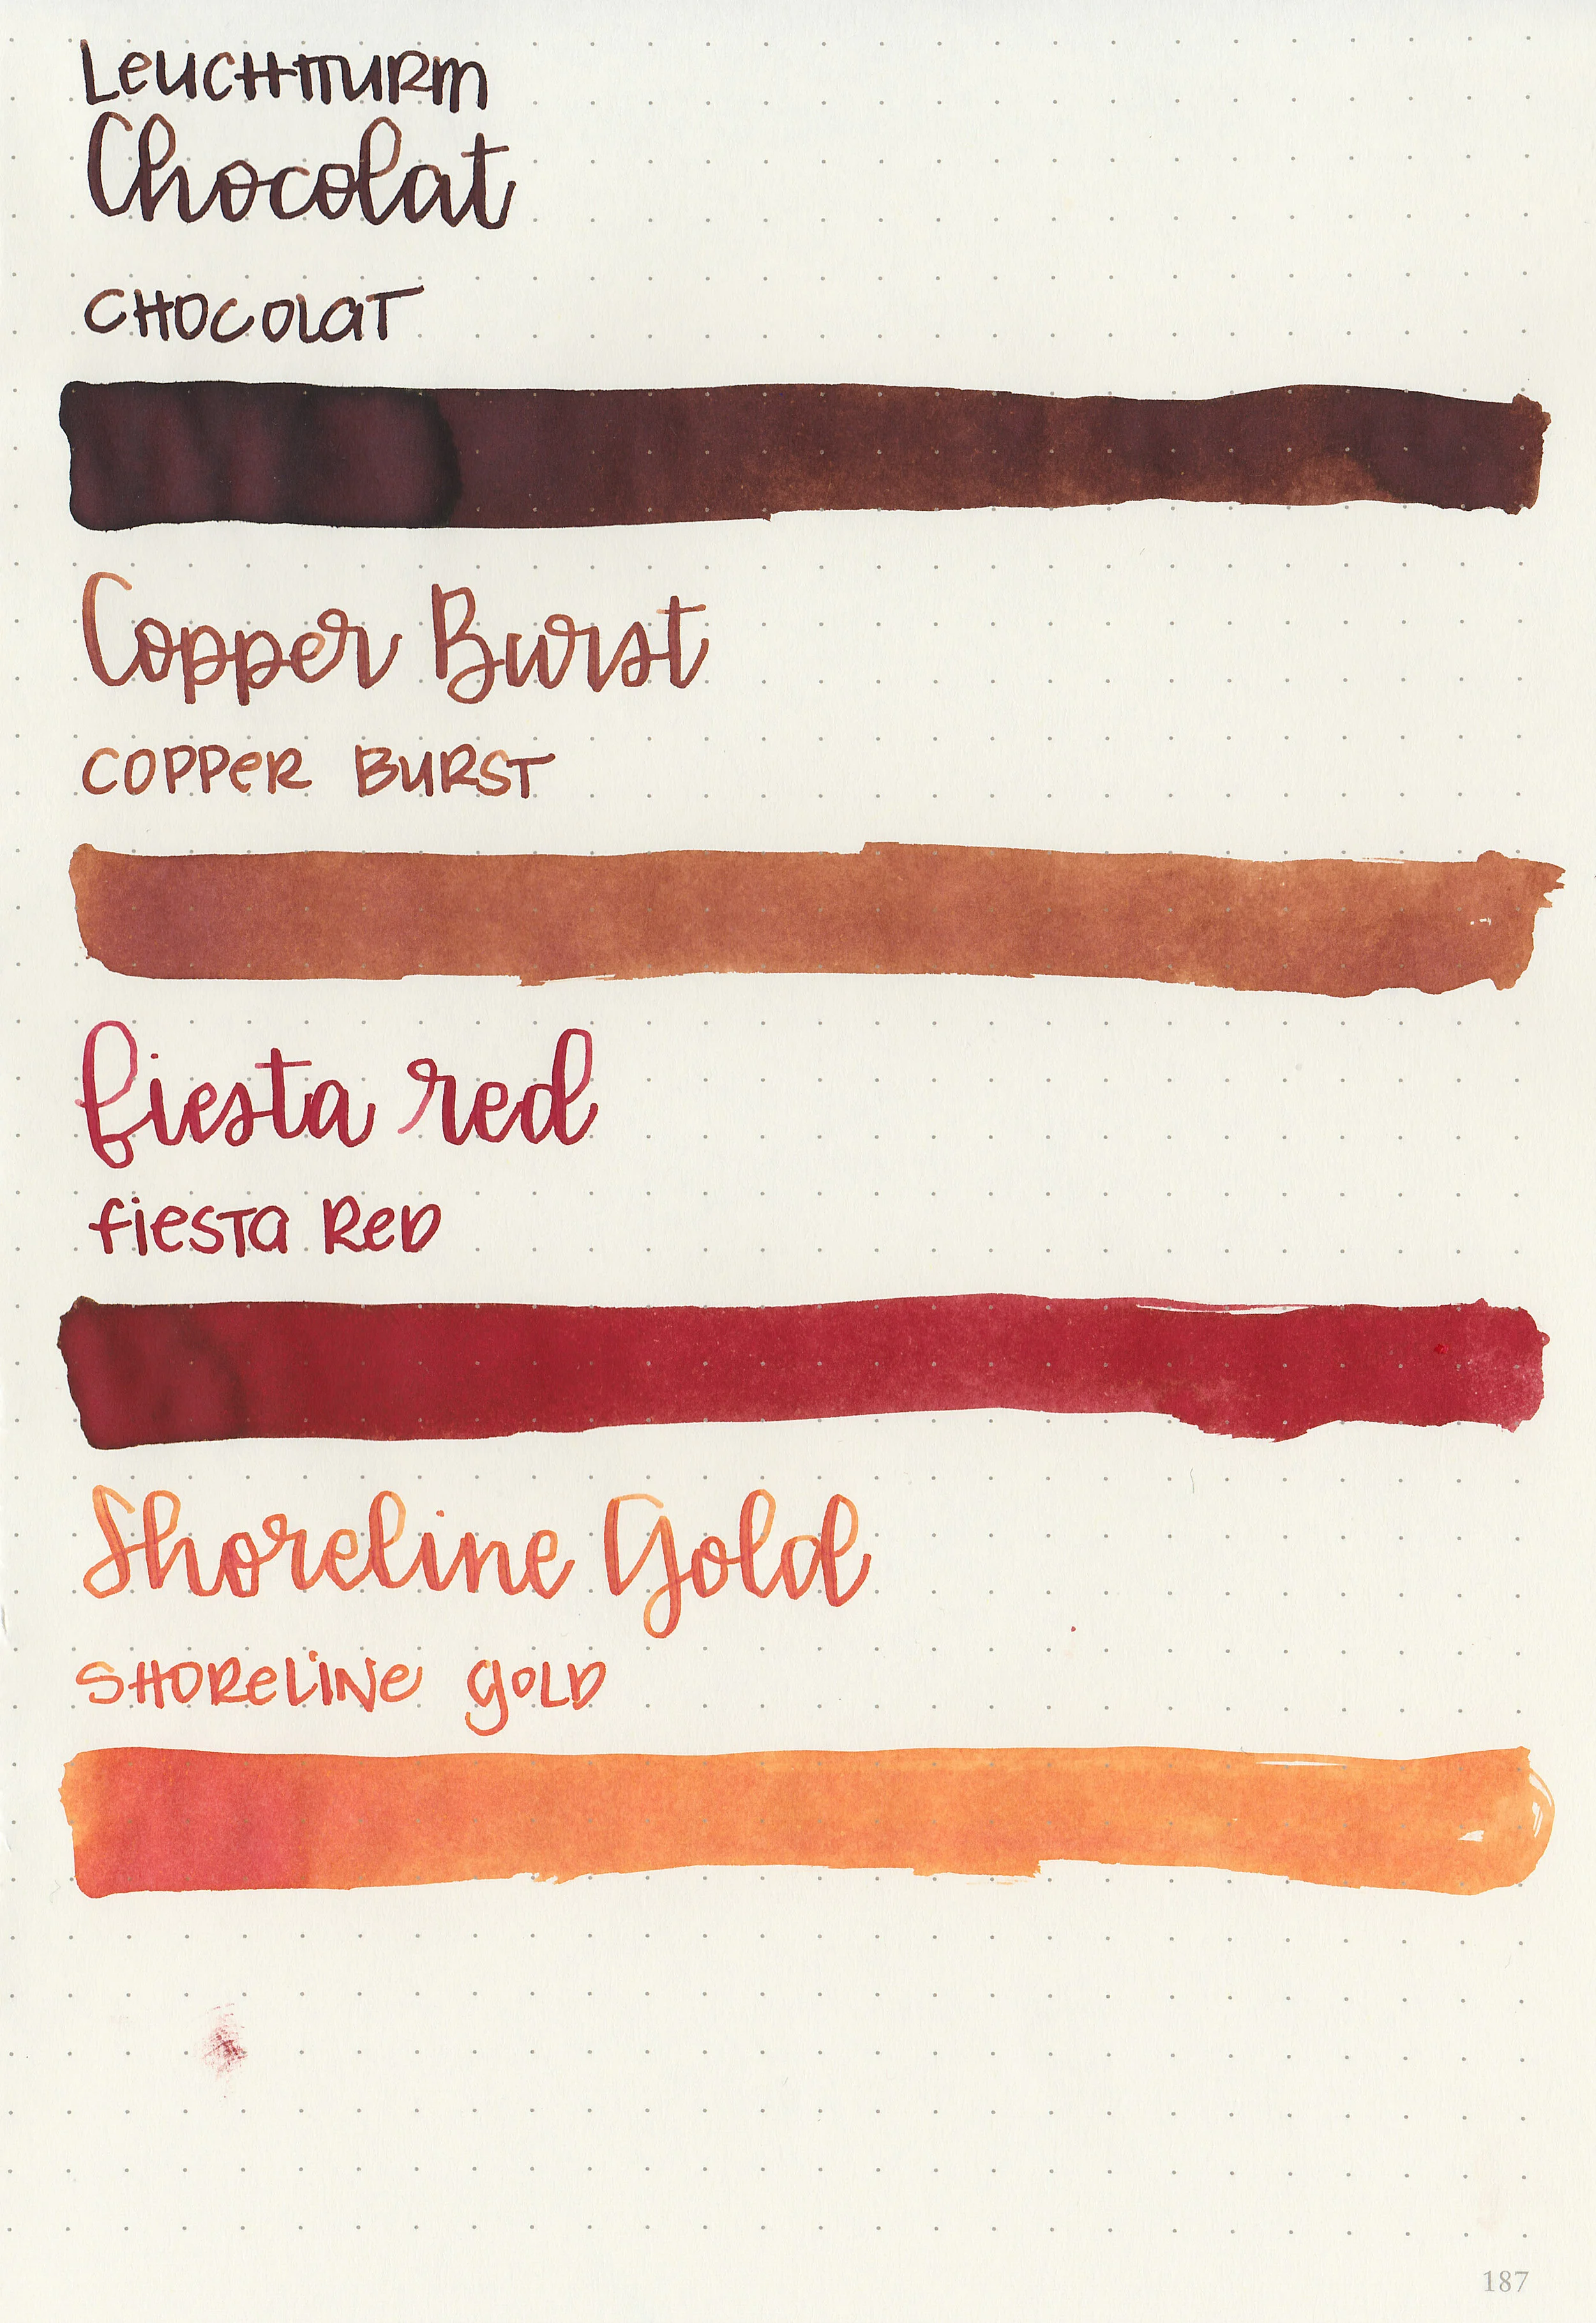 Leuchtturm
Chocolat
Chocolat
Copper Burst
Copper Burst
fiesta red
fiesta Red
Shoreline Gold
Shoreline Gold
187